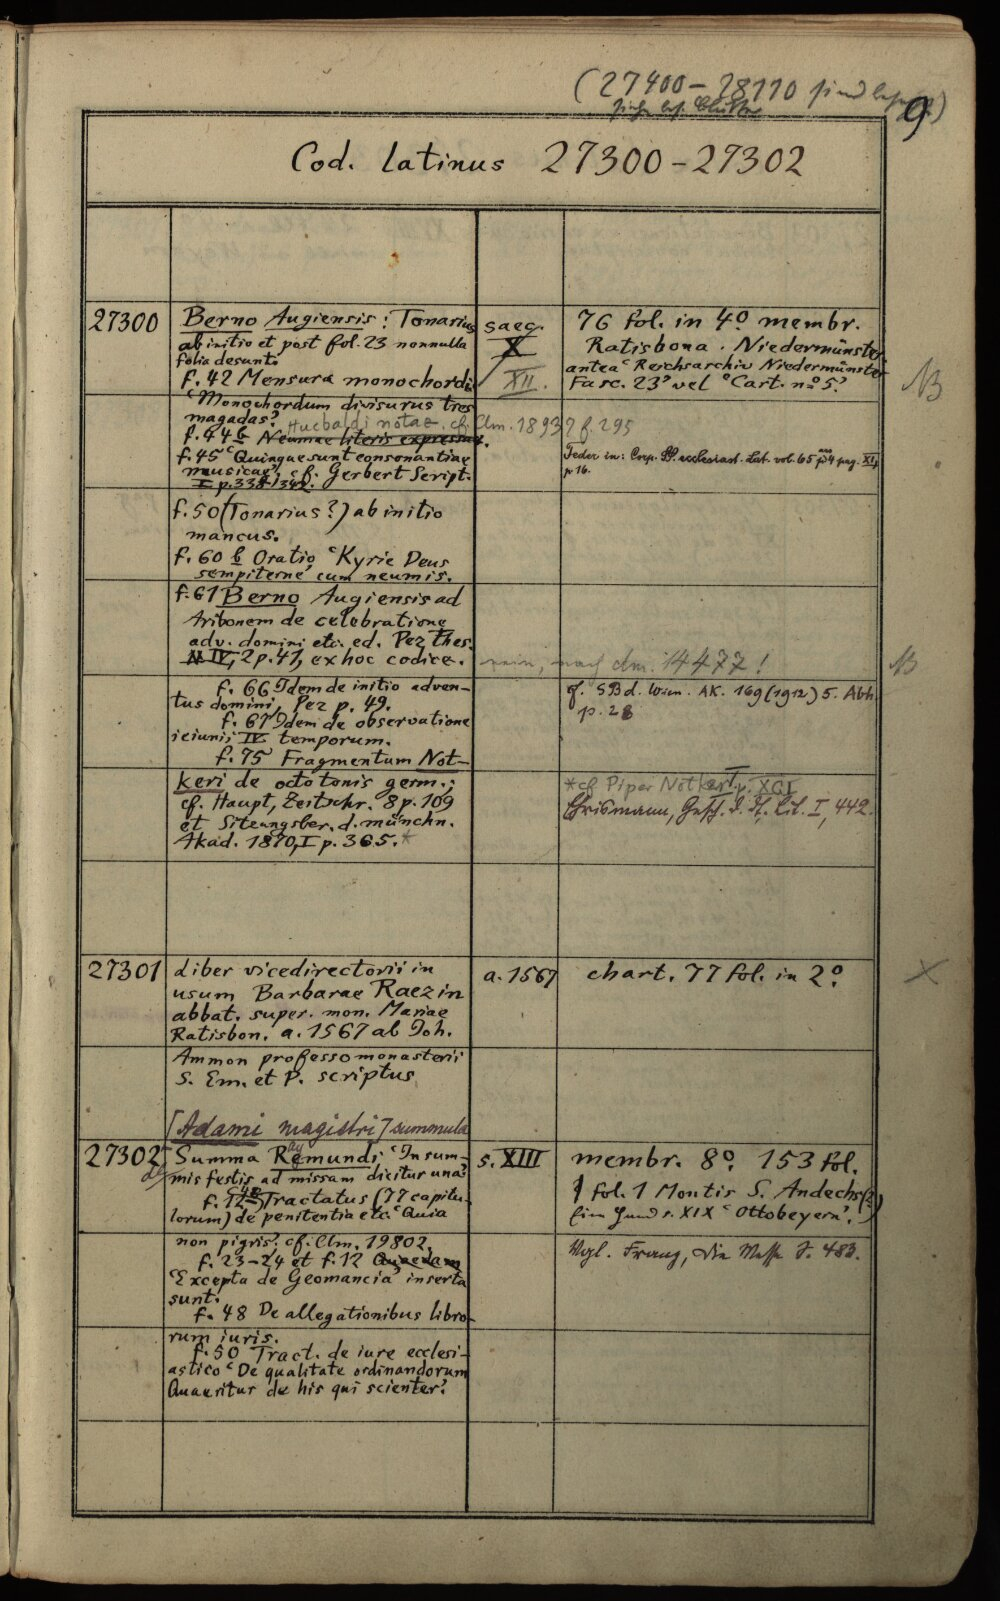 (27400-28110 sind
9
Cod. latinus 27300-27302
27300
Berno Augiensis: Tonarius
ab initio et post fol. 23 nonnulla
folia desunt.
f. 42 Mensura monochordi
‘Monochordum divisurus tres
magadas’.
Hucbaldi notae. cf. Clm. 18937 f. 295
f. 44b Neumae literis expressae.
f. 45 ‘Quinque sunt consonantiae
musicae’, cf. Gerbert Script.
I p. 338-342.
f. 50 (Tonarius?) ab initio
mancus.
f. 60 b Oratio ‘Kyrie Deus
sempiterne’ cum neumis.
f. 61 Berno Augiensis ad
Aribonem de celebratione
adv. domini etc. ed. Pez thes.
IV, 2 p. 41, ex hoc codice.
f. 66 Idem de initio adven-
tus domini, Pez p. 49.
f. 67 Idem de observatione
ieiunii IV temporum.
f. 75 Fragmentum Not-
keri de octo tonis germ.;
cf. Haupt, Zeitschr. 8 p. 109
et Sitzungsber. d. münchn.
Akad. 1870, I p. 365.*
saeg.
X
XII.
76 fol. in 4º membr.
Ratisbona. Niedermünster
antea ‘Reichsarchiv Niedermünster
Fasc. 23’ vel ‘Cart. nº 5.’
NB
Feder in: Corp. SS. ecclesiast. Lat. vol. 65 pag. XI,
p 16.
nein, nach clm. 14477!
NB
cf. SB d. Wien. AK. 169 (1912) 5. Abh.
p. 28
*cf Piper Notkert I p. XCI
Ehrismann, Gesch. d. dt. Lit. I, 442.
27301
Liber vicedirectorii in
usum Barbarae Raezin
abbat. super. mon. Mariae
Ratisbon. a. 1567 ab Joh.
Ammon professo monasterii
S. Em. et P. scriptus
a. 1567
chart. 77 fol. in 2º.
[Adami magistri] summula
27302
Summa Remundi ‘In sum-
mis festis ad missam dicitur una’
f. 12 Tractatus (77 capitu-
lorum) de penitentia etc. ‘Quia
non pigris’. cf. Clm. 19802.
f. 23-24 et f. 12 Quaedam
‘Excepta de Geomancia’ inserta
sunt.
f. 48 De allegationibus libro-
rum iuris.
f. 50 Tract. de iure ecclesi-
astico ‘De qualitate ordinandorum
Quaeritur de his qui scienter’.
s. XIII
membr. 8º. 153 fol.
fol. 1 Montis S. Andechs(?)
Eine Hand s. XIX ‘Ottobeyern’.
Vgl. Franz, Die Messe S. 483.